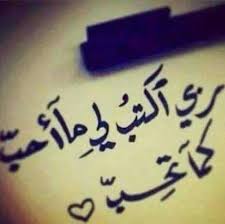 ربي اكتبُ لي مآ أحبّ
كمآ تحبّ ♡